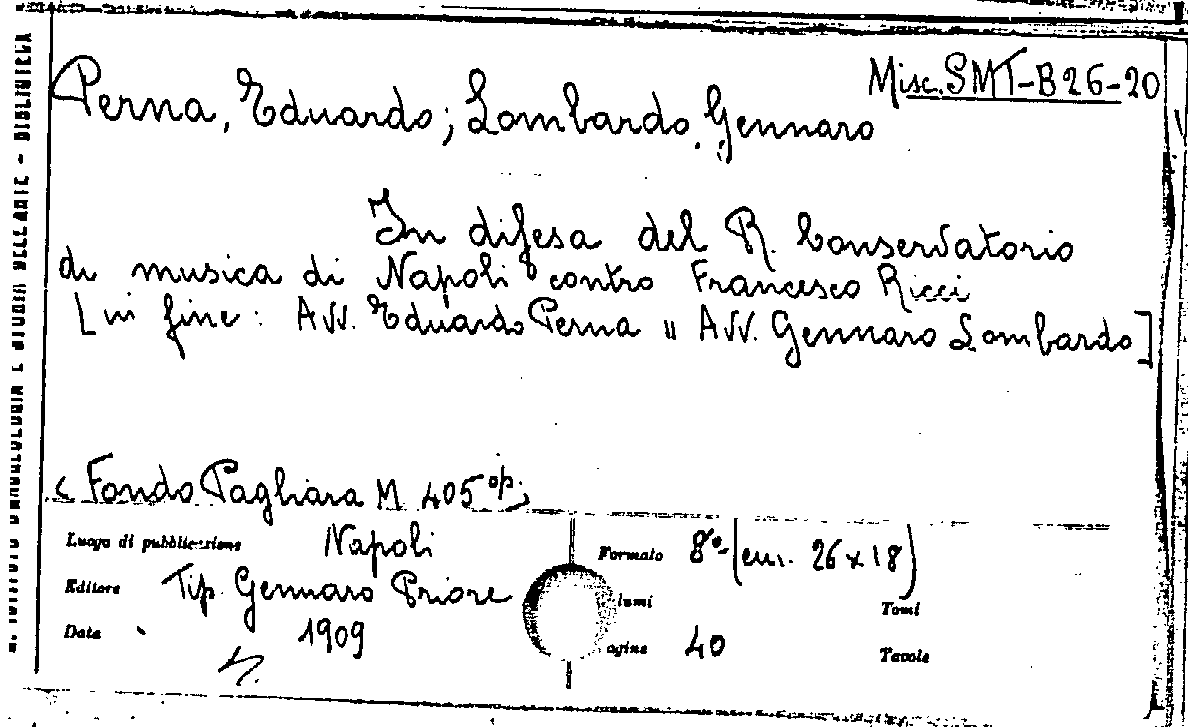 Misc. SMT-B26-20
Perna, Eduardo; Lombardo, Gennaro
In difesa del R. Conservatorio
di musica di Napoli contro Francesco Ricci
[in fine: Avv. Eduardo Perna " Avv. Gennaro Lombardo]
(Fondo Pagliara M 405 op.)
Luogo di pubblicazione Napoli
Formato 8°- (cm. 26 x 18)
Editore Tip. Gennaro Priore
lumi
Tomi
Data 1909
agine 40
Tavole